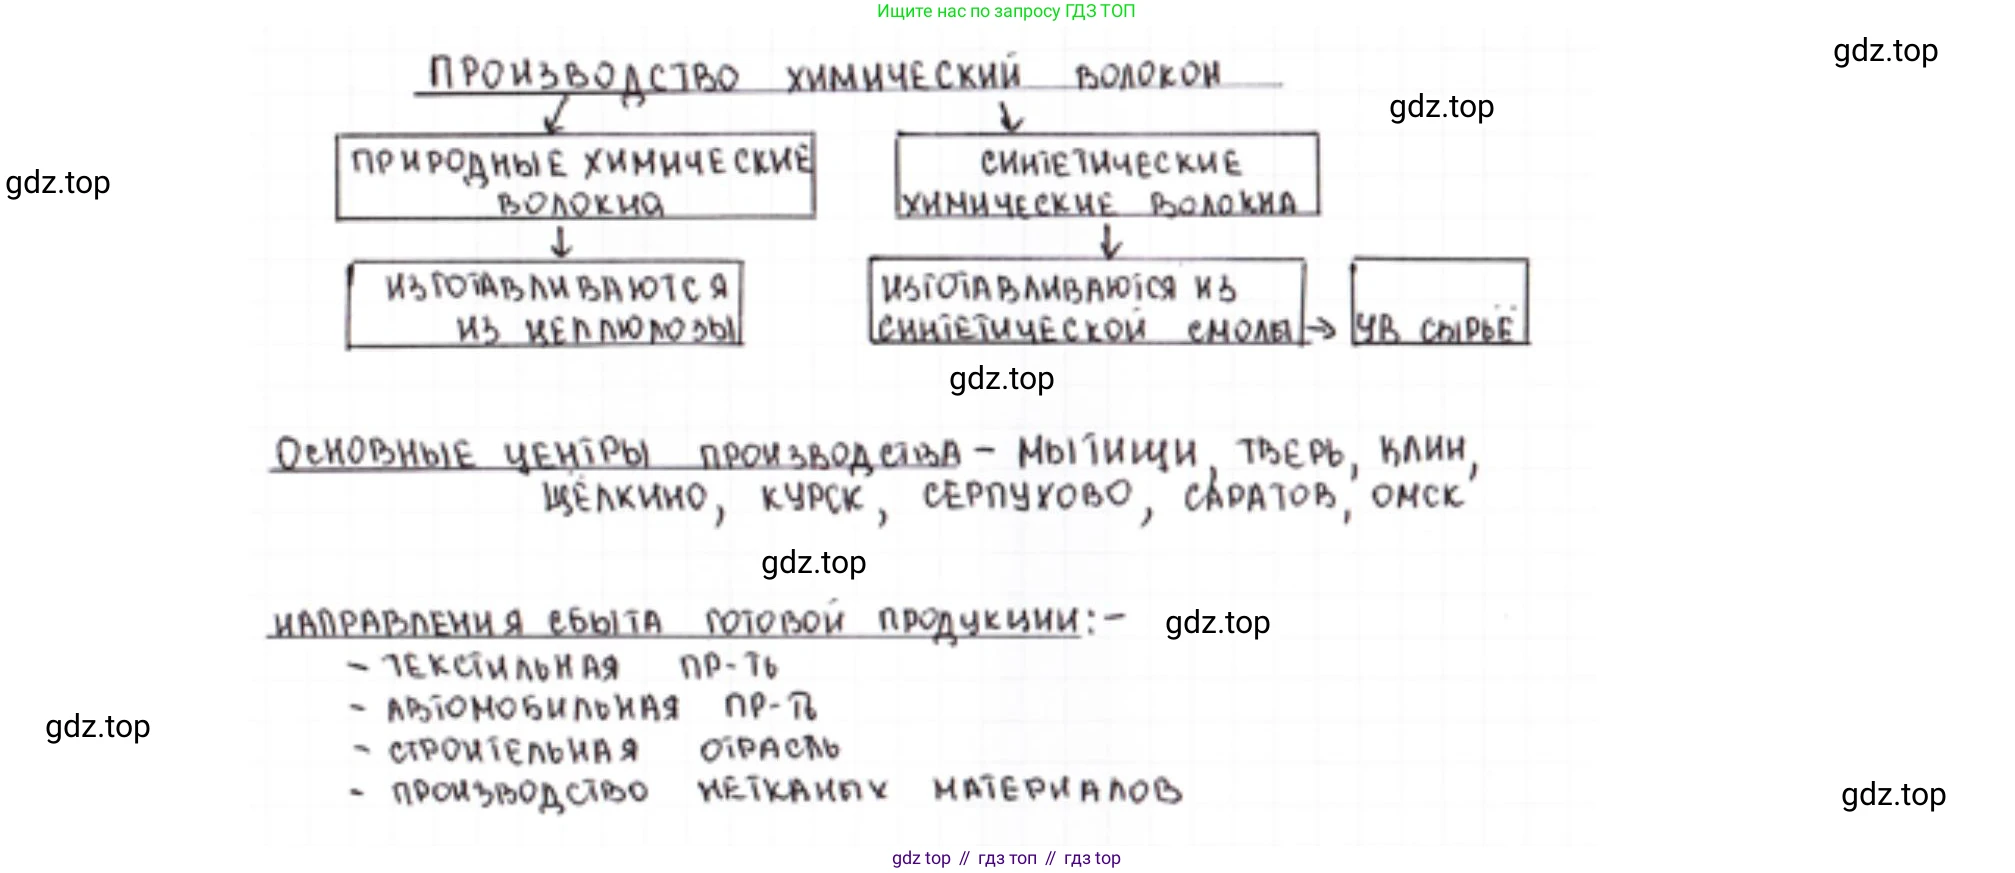 Ищите нас по запросу ГДЗ ТОП
gdz.top
ПРОИЗВОДСТВО ХИМИЧЕСКИЙ ВОЛОКОН
gdz.top
gdz.top
ПРИРОДНЫЕ ХИМИЧЕСКИЕ ВОЛОКНА
СИНТЕТИЧЕСКИЕ ХИМИЧЕСКИЕ ВОЛОКНА
ИЗГОТАВЛИВАЮТСЯ ИЗ ЦЕЛЛЮЛОЗЫ
ИЗГОТАВЛИВАЮТСЯ ИЗ СИНТЕТИЧЕСКОЙ СМОЛЫ
УВ СЫРЬЁ
gdz.top
ОСНОВНЫЕ ЦЕНТРЫ ПРОИЗВОДСТВА – МЫТИЩИ, ТВЕРЬ, КЛИН,
ЩЁЛКИНО, КУРСК, СЕРПУХОВО, САРАТОВ, ОМСК
gdz.top
НАПРАВЛЕНИЯ СБЫТА ГОТОВОЙ ПРОДУКЦИИ: –
gdz.top
- ТЕКСТИЛЬНАЯ ПР-ТЬ
- АВТОМОБИЛЬНАЯ ПР-ТЬ
gdz.top
- СТРОИТЕЛЬНАЯ ОТРАСЛЬ
- ПРОИЗВОДСТВО НЕТКАНЫХ МАТЕРИАЛОВ
gdz.top
gdz top // гдз топ // гдз top